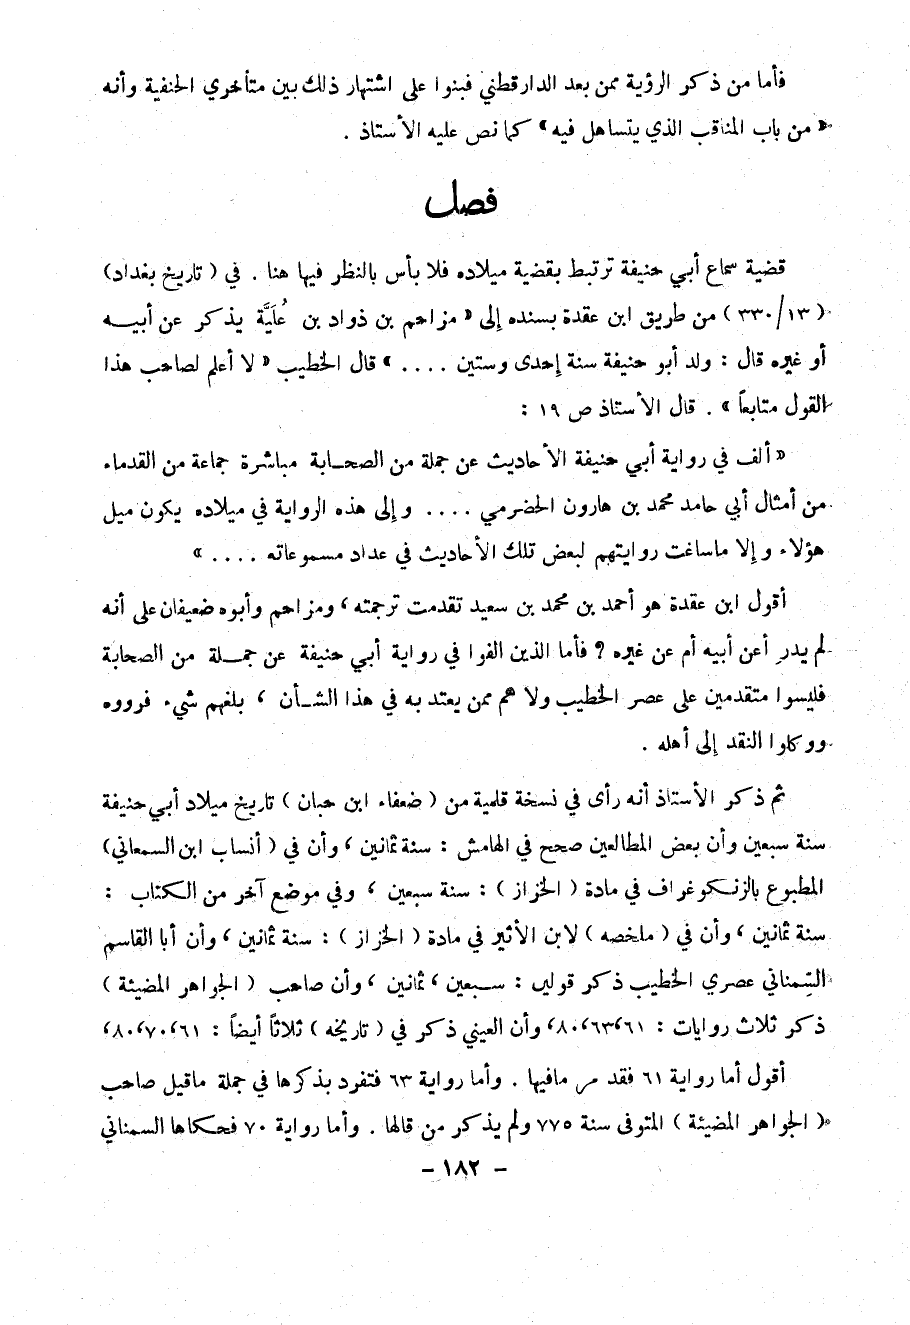 فأما من ذكر الرؤية ممن بعد الدارقطني فبنوا على اشتهار ذلك بين متأخري الحنفية وأنه
« من باب المناقب الذي يتساهل فيه » كما نص عليه الأستاذ .
فصل
قضية سماع أبي حنيفة ترتبط بقضية ميلاده فلا بأس بالنظر فيها هنا . في ( تاريخ بغداد )
( ١٣/ ٣٣٠ ) من طريق ابن عقدة بسنده إلى « مزاحم بن ذواد بن عُلَيَّة يذكر عن أبيه
أو غيره قال : ولد أبو حنيفة سنة إحدى وستين .... » قال الخطيب « لا أعلم لصاحب هذا
القول متابعاً » . قال الأستاذ ص ١٩ :
« ألف في رواية أبي حنيفة الأحاديث عن جملة من الصحابة مباشرة جماعة من القدماء
من أمثال أبي حامد محمد بن هارون الحضرمي .... وإلى هذه الرواية في ميلاده يكون ميل
هؤلاء وإلا ماساغت روايتهم لبعض تلك الأحاديث في عداد مسموعاته .... »
أقول ابن عقدة هو أحمد بن محمد بن سعيد تقدمت ترجمته ، ومزاحم وأبوه ضعيفان على أنه
لم يدر أعن أبيه أم عن غيره ؟ فأما الذين الفوا في رواية أبي حنيفة عن جملة من الصحابة
فليسوا متقدمين على عصر الخطيب ولا هم ممن يعتد به في هذا الشأن ، بلغهم شيء فرووه
ووكلوا النقد إلى أهله .
ثم ذكر الأستاذ أنه رأى في نسخة قلمية من ( ضعفاء ابن حبان ) تاريخ ميلاد أبي حنيفة
سنة سبعين وأن بعض المطالعين صحح في الهامش : سنة ثمانين ، وأن في ( أنساب ابن السمعاني )
المطبوع بالزنكوغراف في مادة ( الخزاز ) : سنة سبعين ، وفي موضع آخر من الكتاب :
سنة ثمانين ، وأن في ( ملخصه ) لابن الأثير في مادة ( الخزاز ) : سنة ثمانين ، وأن أبا القاسم
السِّمناني عصري الخطيب ذكر قولين : سبعين ، ثمانين ، وأن صاحب ( الجواهر المضيئة )
ذكر ثلاث روايات : ٦١ ، ٦٣ ، ٨٠ ، وأن العيني ذكر في ( تاريخه ) ثلاثاً أيضاً : ٦١ ، ٧٠ ، ٨٠ ،
أقول أما رواية ٦١ فقد مر مافيها . وأما رواية ٦٣ فتفرد بذكرها في جملة ماقيل صاحب
( الجواهر المضيئة ) المتوفى سنة ٧٧٥ ولم يذكر من قالها . وأما رواية ٧٠ فحكاها السمناني
– ١٨٢ –